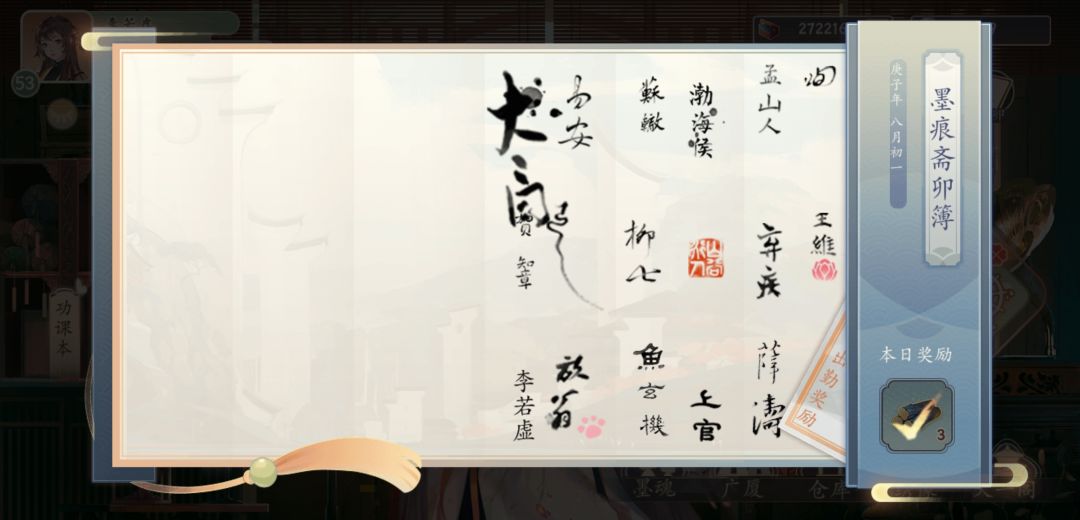 墨痕斋卯簿
庚子年 八月初一
本日奖励
3
王維
孟山人
弃疾
薛濤
渤海侯
上官
蘇轍
柳七
魚玄機
易安
放翁
太白
賀知章
李若虚
出勤奖励
53
功课本
墨魂
广厦
仓库